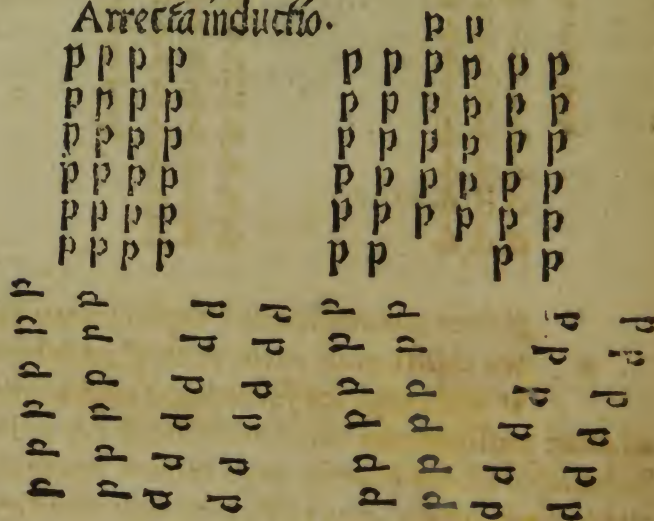 Arrecta inductio.
p p
p p p p p p p p p p
p p p p p p p p p p
p p p p p p p p p p
p p p p p p p p p p
p p p p p p p p p p
p p p p p p p p
p p d d p p d d
p p d d p p d d
p p d d p p d d
p p d d p p d d
p p d d p p d d
p p d d p p d d